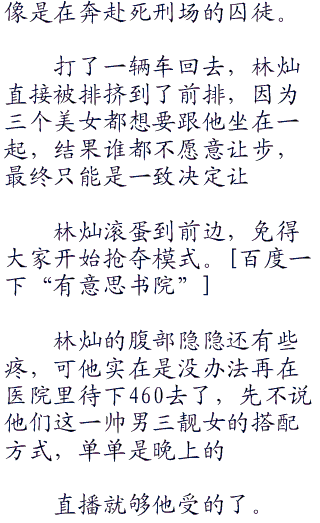 像是在奔赴死刑场的囚徒。
打了一辆车回去，林灿
直接被排挤到了前排，因为
三个美女都想要跟他坐在一
起，结果谁都不愿意让步，
最终只能是一致决定让
林灿滚蛋到前边，免得
大家开始抢夺模式。[百度一
下“有意思书院”]
林灿的腹部隐隐还有些
疼，可他实在是没办法再在
医院里待下460去了，先不说
他们这一帅男三靓女的搭配
方式，单单是晚上的
直播就够他受的了。